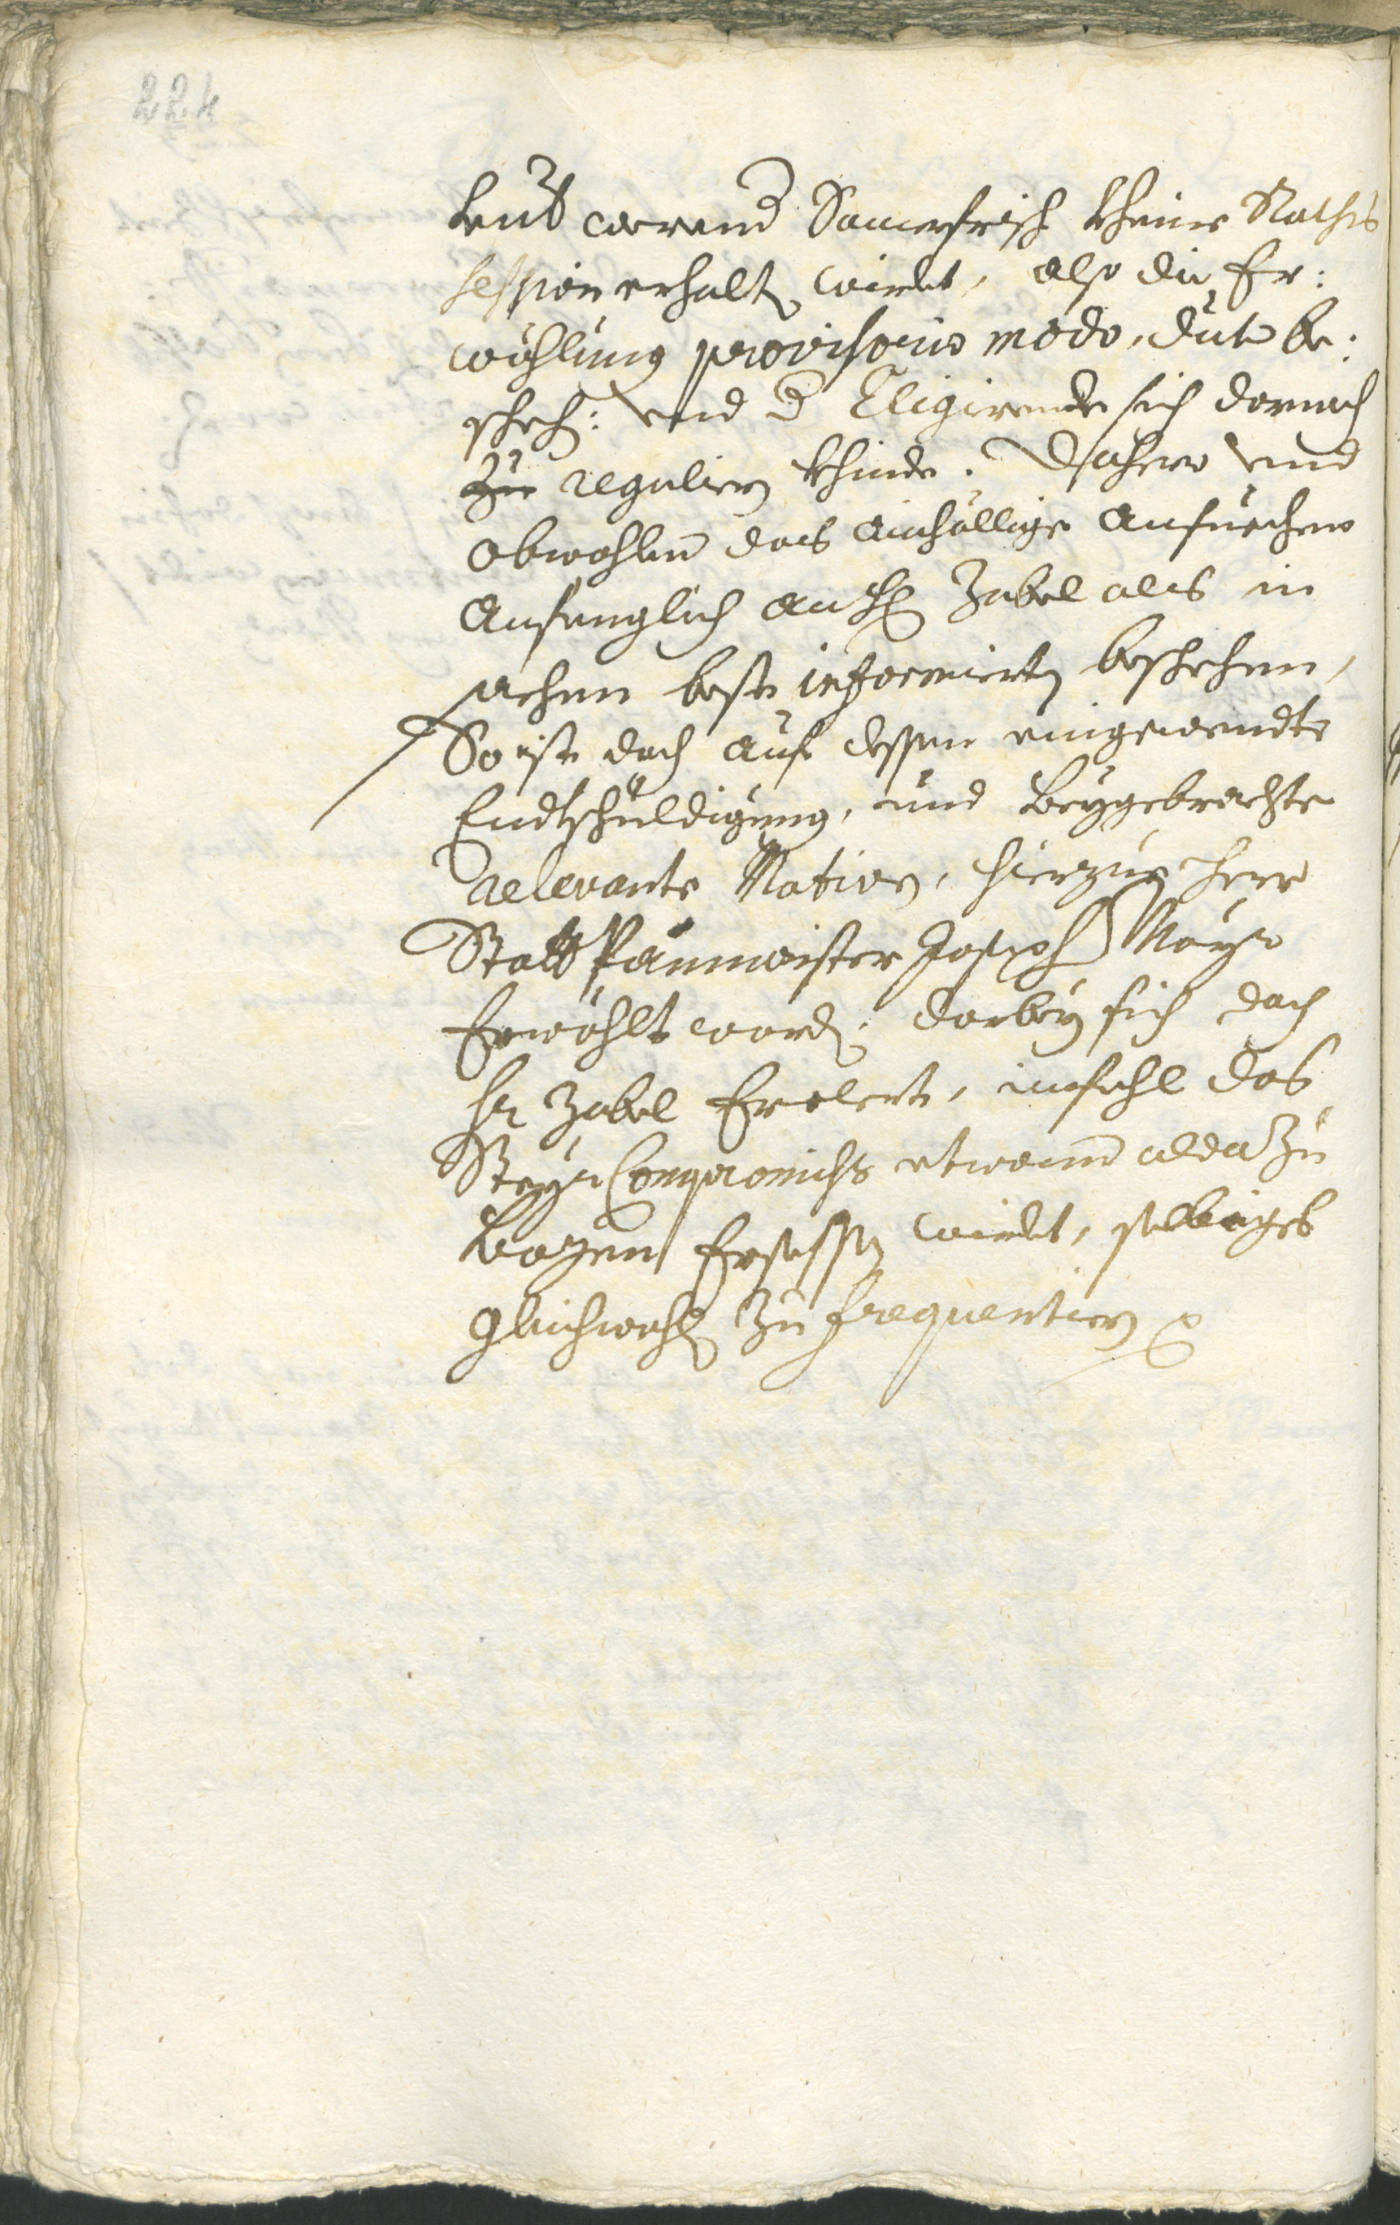 224
weil werend Somerfrisch kheine Raths
session erhalt wirdt, also die Er:
wöhlung provisorio modo, dut be:
scheh: und d Eligirende sich darnach
zu regulirn khinde. Dahero und
obwohlen das ainhöllige Ansuechen
Anfenglich an H Zabel als in
sachen beste informirten beschehen,
So ist doch auf dessen eingewendte
Endtschuldigung, und beygebrachte
relevante Motiven, hierzue Herr
Statt Paumeister Joseph Mayr
Erwöhlt word; darbey sich doch
Hr Zabel Erclert, imfahl das
Steyr Compromiss etwann alda zu
Bozen Ersessen wirdt, selbiges
gleichwohl zu frequentiern